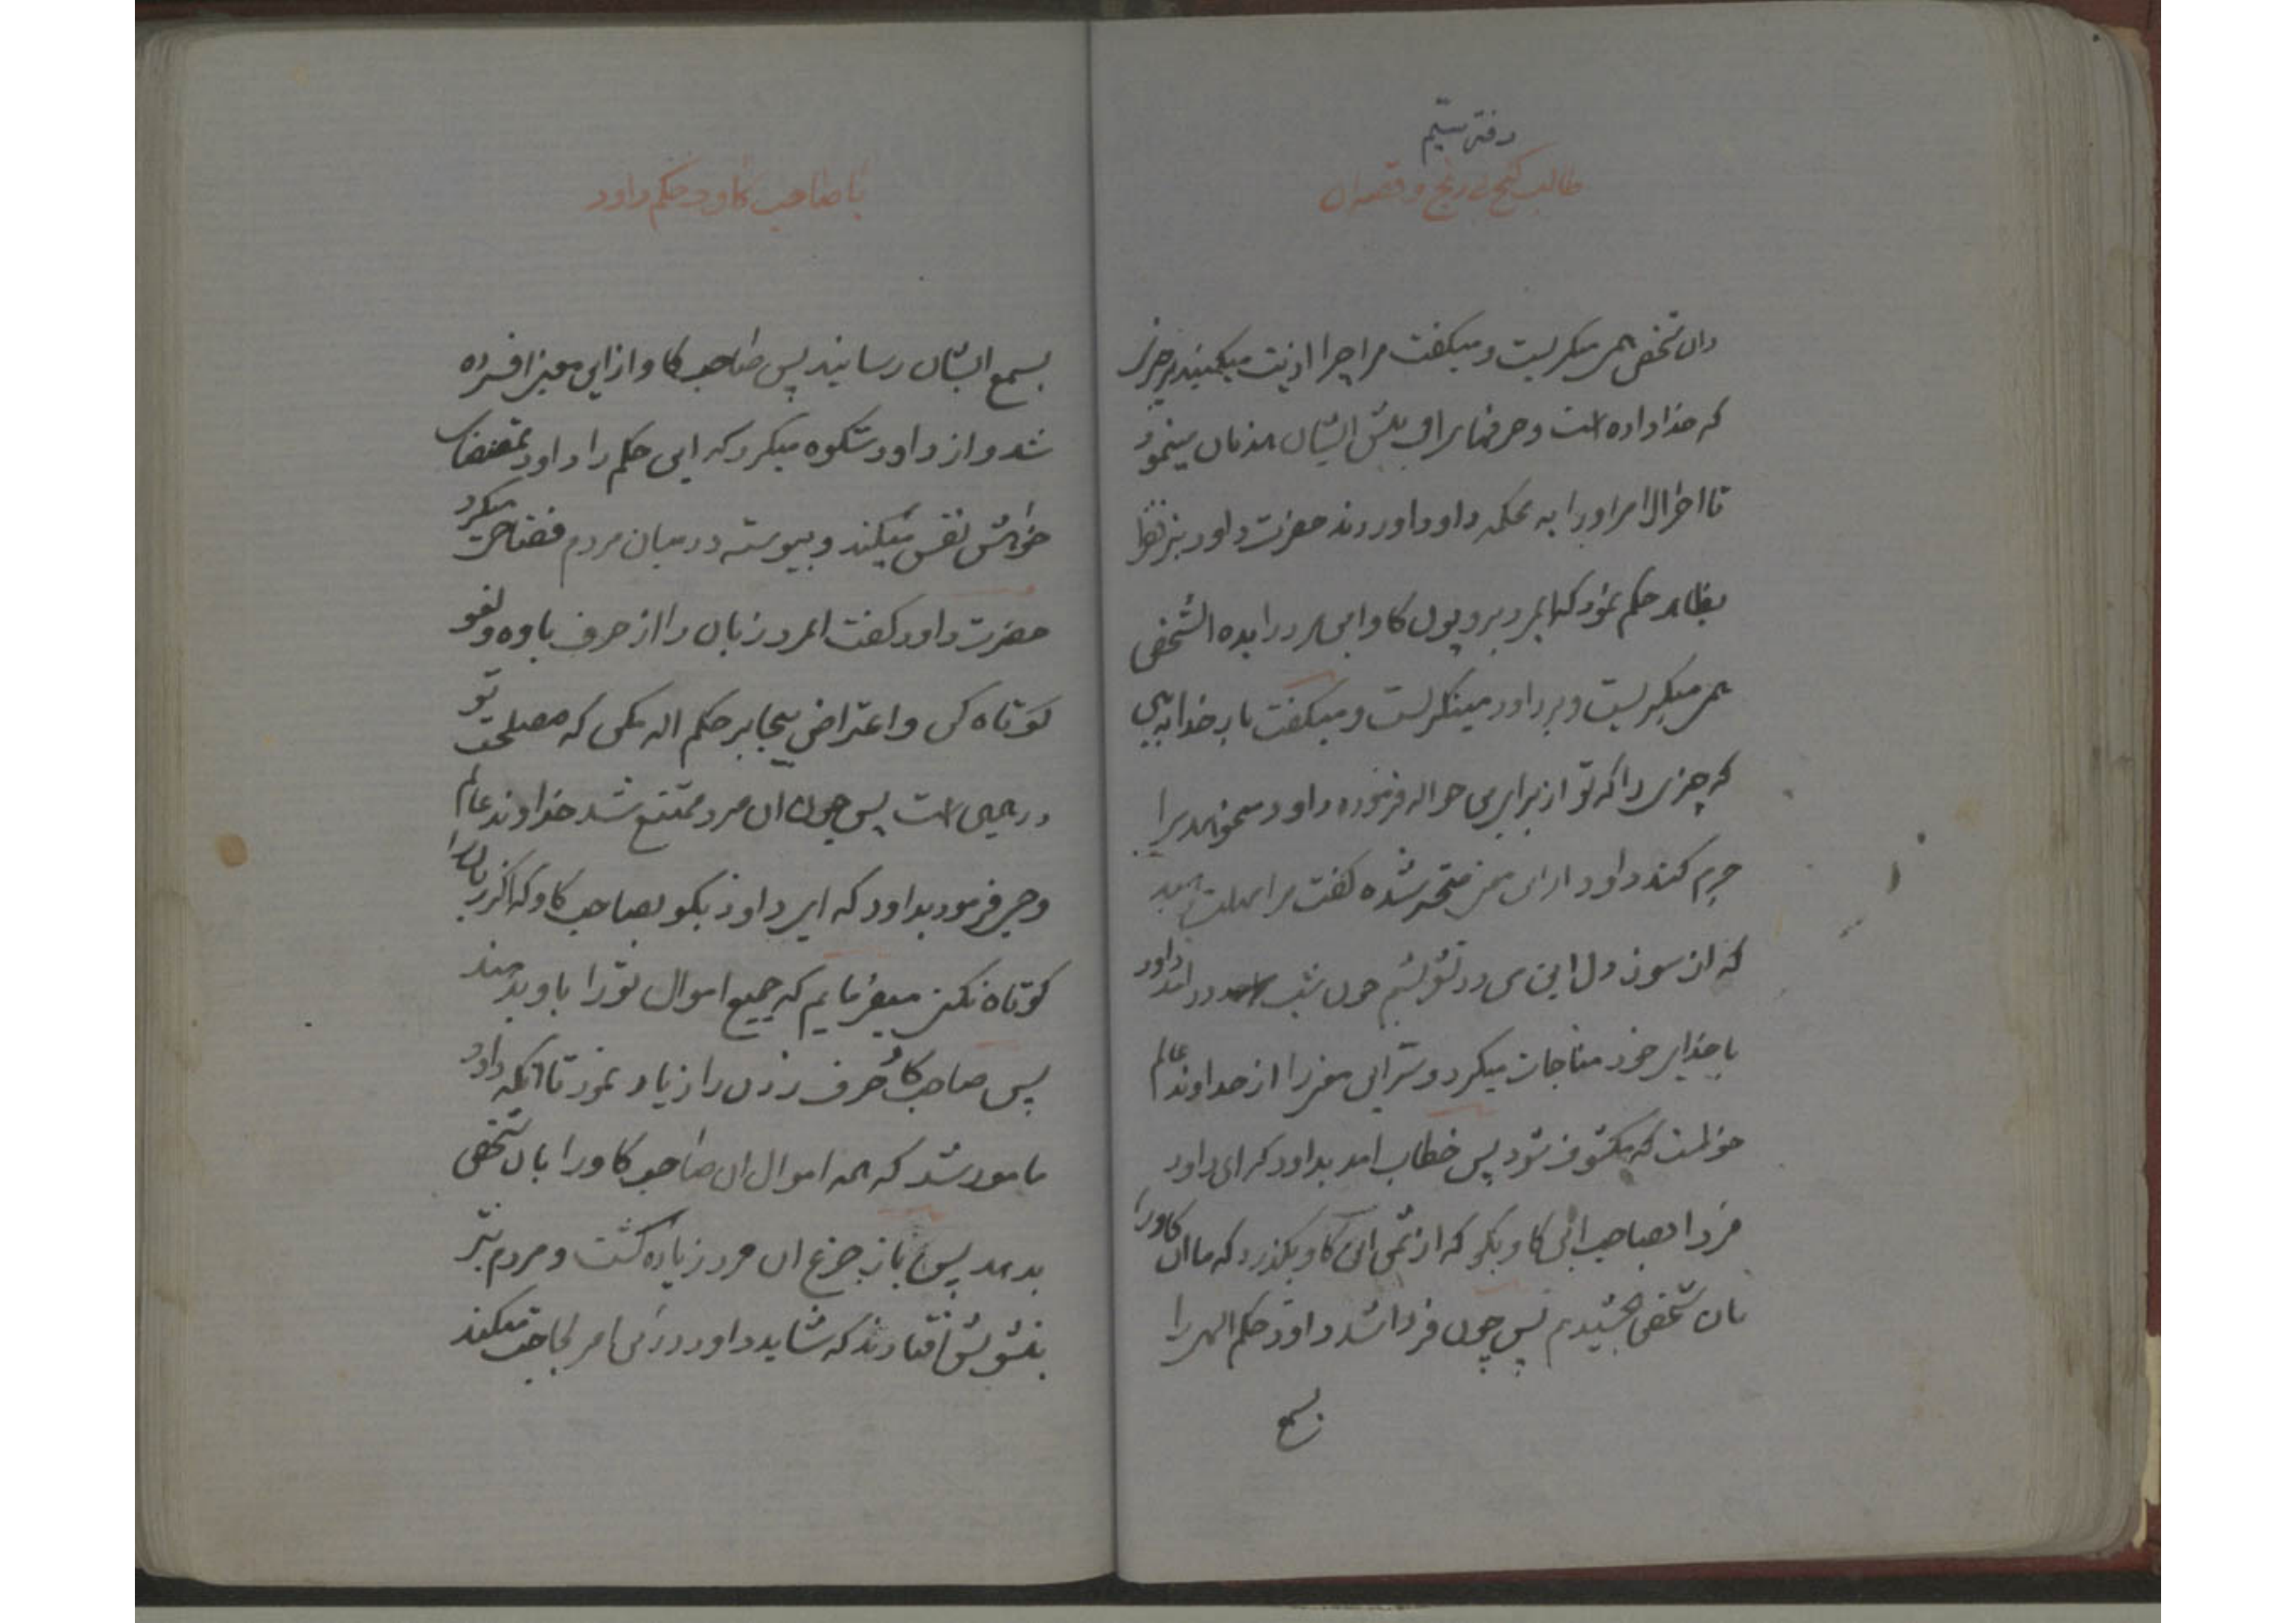 دفتر سیم
طالب گنج بی رنج و قصه ان
وان شخص همی میکریست و میکفت مرا چرا اذیت میکنید بر چیزی
که خدا داده است و حرفها برای پیش ایشان میزمان مینمود
تا اخر الامر او را به محکمه داود اوردند حضرت داود نیز
بظاهر حکم نمود که ایمرد برو پول کاو این مرد را بده ان شخص
همی میکریست و بر داود مینکریست و میکفت بار خدایا
که چیزی را که تو از برای من حواله فرموده داود میخواهد مرا
جرم کند داود از این معنی متحیر شده کفت مرا مهلت دهید
که از سوز دل این من در تشویشم چون شب در امد داود
با خدای خود مناجات میکرد و سر این معنی را از خداوند عالم
خواست که مکشوف شود پس خطاب امد بداود که ای داود
فردا بصاحب این کاو بکو که از ثمن این کاو بکذرد که ما ان کاو را
بان شخص بخشیدیم پس چون فردا شد داود حکم الهی را
بسمع
با صاحب کاو و حکم داود
بسمع ایشان رسانید پس صاحب کاو از این معنی افسرده
شد و از داود شکوه میکرد که این حکم را داود بمقتضای
خواهش نفس میکند و پیوسته در میان مردم فضاحت میکرد
حضرت داود کفت ایمرد زبان را از حرف یاوه و لغو
کوتاه کن و اعتراض بیجا بر حکم اله مکن که مصلحت تو
در همین است پس چون ان مرد ممتنع نشد خداوند عالم
وحی فرمود بداود که ای داود بکو بصاحب کاو که اکر زبان را
کوتاه نکنی میفرمایم که جمیع اموال تو را باو بدهند
پس صاحب کاو حرف زدن را زیاد نمود تا انکه داود
مامور شد که همه اموال ان صاحب کاو را بان شخص
بدهد پس باز جزع ان مرد زیاده کشت و مردم نیز
بتشویش افتادند که شاید داود در این امر لجاجت میکند